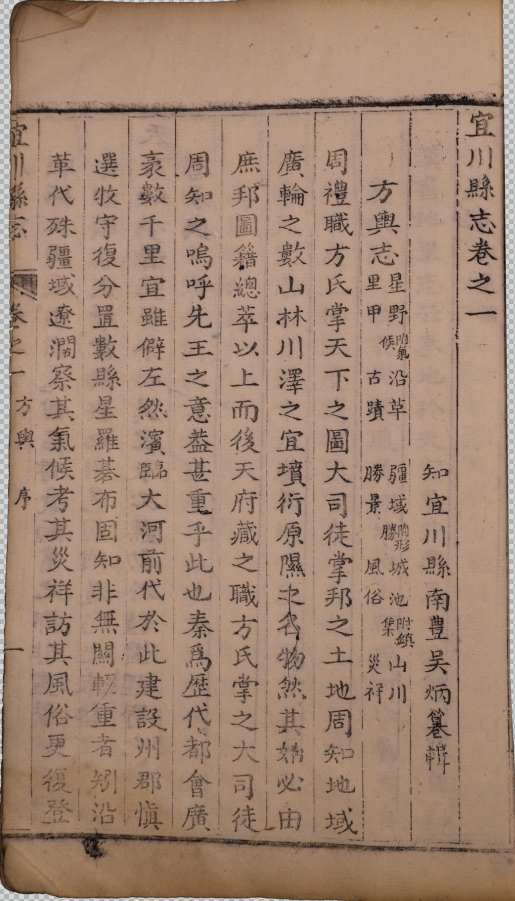 宜川縣志卷之一
知宜川縣南豐吳炳纂輯
方輿志 星野附氣候 沿革 疆域附形勝 城池附鎮集 山川
里甲 古蹟 勝景 風俗 災祥
周禮職方氏掌天下之圖大司徒掌邦之土地周知地域
廣輪之數山林川澤之宜墳衍原隰之名物然其始必由
庶邦圖籍總萃以上而後天府藏之職方氏掌之大司徒
周知之嗚呼先王之意葢甚重乎此也秦爲歴代都會廣
袤數千里宜雖僻左然濱臨大河前代於此建設州郡慎
選牧守復分置數縣星羅棊布固知非無關輕重者矧沿
革代殊疆域遼濶察其氣候考其災祥訪其風俗更復登
宜川縣志 卷之一 方輿 序 一